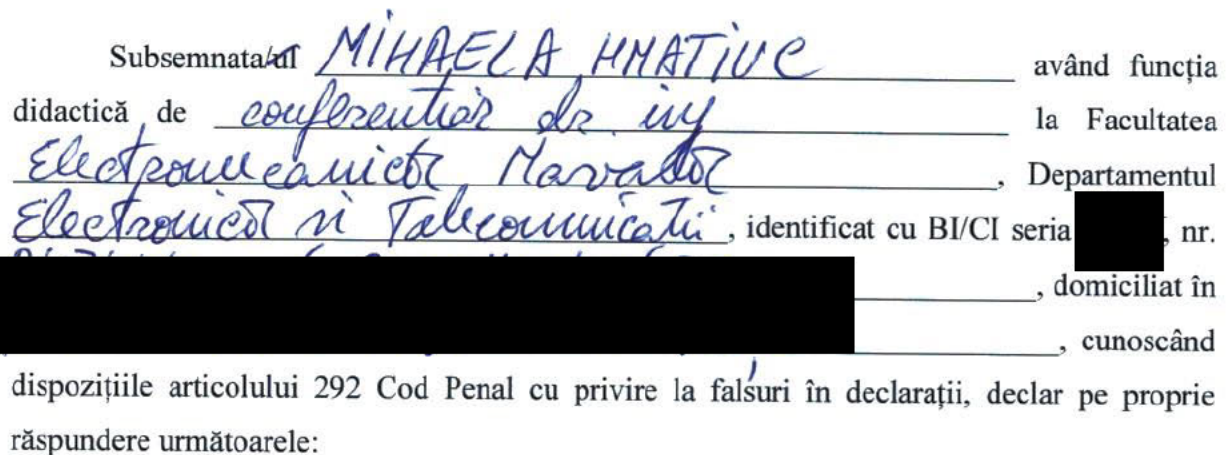 Subsemnata/ul MIHAELA HNATIUC având funcția
didactică de conferentiar dr ing la Facultatea
Electromecanică Navală, Departamentul
Electronică si Telecomunicatii, identificat cu BI/CI seria , nr.
, domiciliat în
, cunoscând
dispozițiile articolului 292 Cod Penal cu privire la falsuri în declarații, declar pe proprie
răspundere următoarele: